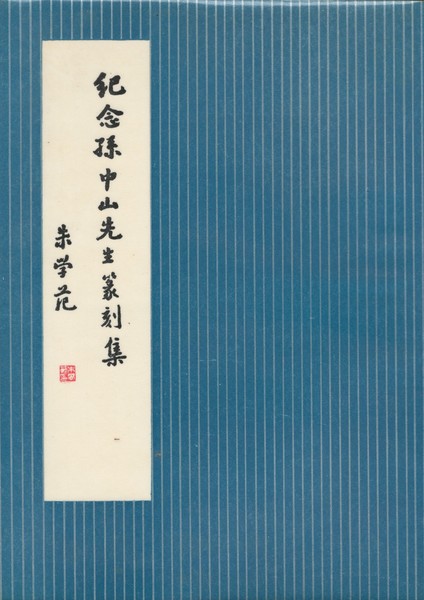 纪念孫中山先生篆刻集
朱学范